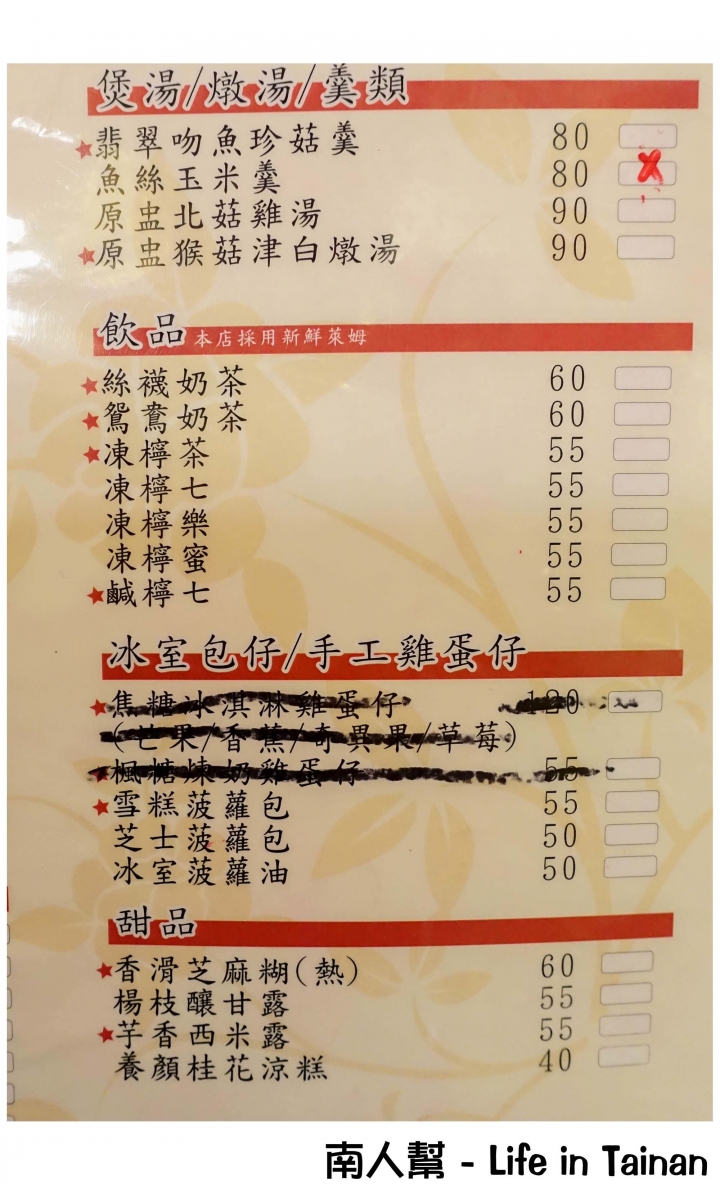 煲湯/燉湯/羹類
★翡翠吻魚珍菇羹 80
魚絲玉米羹 80 X
原盅北菇雞湯 90
★原盅猴菇津白燉湯 90
飲品 本店採用新鮮萊姆
★絲襪奶茶 60
★鴛鴦奶茶 60
★凍檸茶 55
凍檸七 55
凍檸樂 55
凍檸蜜 55
★鹹檸七 55
冰室包仔/手工雞蛋仔
★焦糖冰淇淋雞蛋仔 120
(芒果/香蕉/奇異果/草莓)
★楓糖煉奶雞蛋仔 55
★雪糕菠蘿包 55
芝士菠蘿包 50
冰室菠蘿油 50
甜品
★香滑芝麻糊(熱) 60
楊枝釀甘露 55
★芋香西米露 55
養顏桂花涼糕 40
南人幫 - Life in Tainan